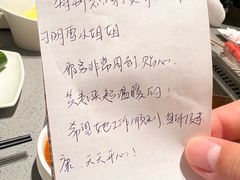 特别
刁明雪小姐姐
服务非常周到贴心。
笑起来超温暖的！
希望她工作顺利身体健
康、天天开心！